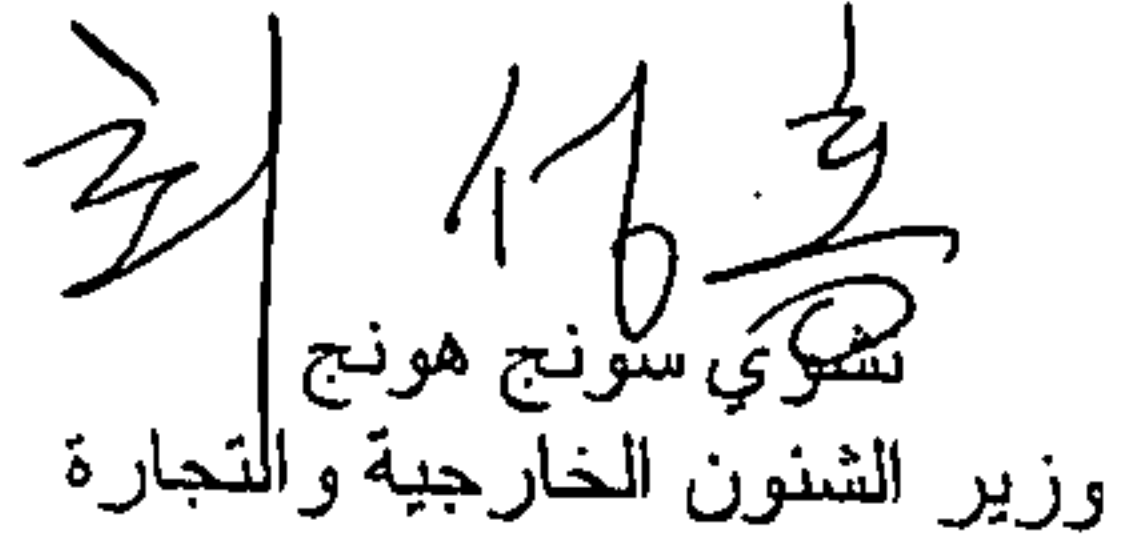 최성홍
تشوي سونج هونج
وزير الشئون الخارجية والتجارة